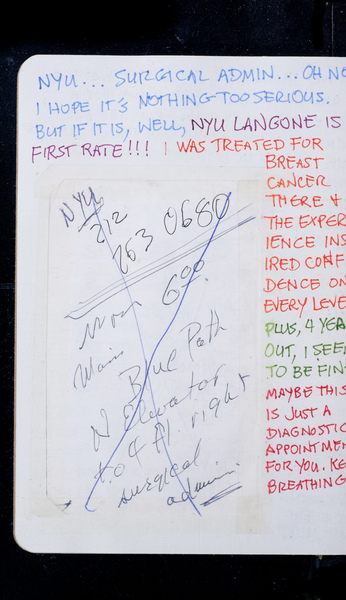 NYU... SURGICAL ADMIN... OH NO
I HOPE IT'S NOTHING TOO SERIOUS.
BUT IF IT IS, WELL, NYU LANGONE IS
FIRST RATE!!! I WAS TREATED FOR
BREAST
CANCER
THERE +
THE EXPER-
IENCE INS
IRED CONF
DENCE ON
EVERY LEVE
PLUS, 4 YEA
OUT, I SEEM
TO BE FIN
MAYBE THIS
IS JUST A
DIAGNOSTIC
APPOINTMEN
FOR YOU. KE
BREATHING
NYU
212
263 0680
600
Main
Blue Path
N Elevator
to 4 fl. right
surgical
admin.